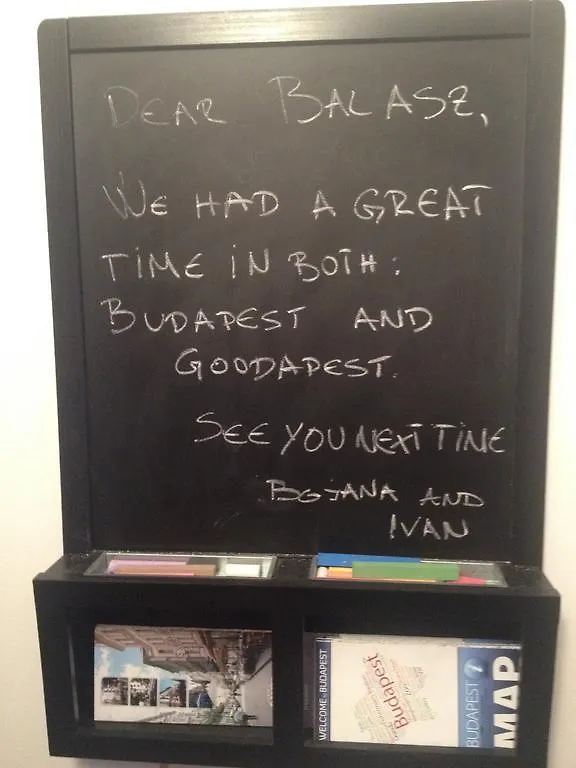 DEAR BALASZ,
WE HAD A GREAT
TIME IN BOTH:
BUDAPEST AND
GOODAPEST.
SEE YOU NEXT TIME
BOJANA AND
IVAN
WELCOME TO BUDAPEST
Budapest
BUDAPEST i
MAP